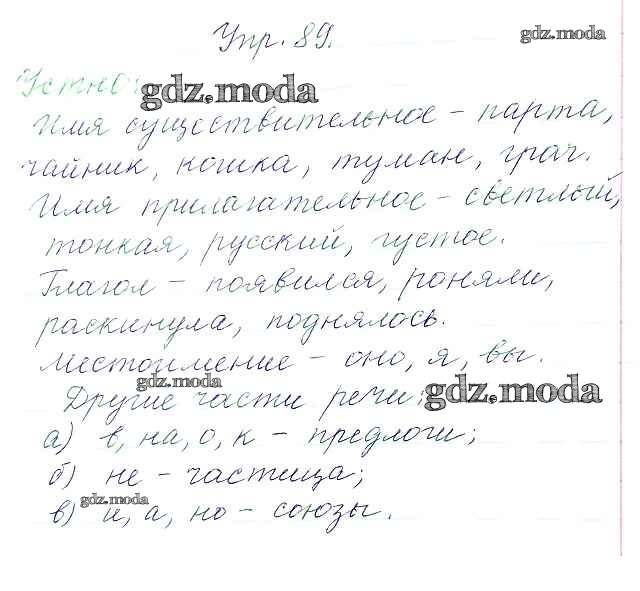 Упр. 89.
gdz.moda
Устно:
gdz.moda
Имя существительное - парта,
чайник, кошка, туман, грач.
Имя прилагательное - светлый,
тонкая, русский, густое.
Глагол - появился, роняли,
раскинула, поднялось.
Местоимение - оно, я, вы.
gdz.moda
Другие части речи:
gdz.moda
а) в, на, о, к - предлоги;
б) не - частица;
gdz.moda
в) и, а, но - союзы.